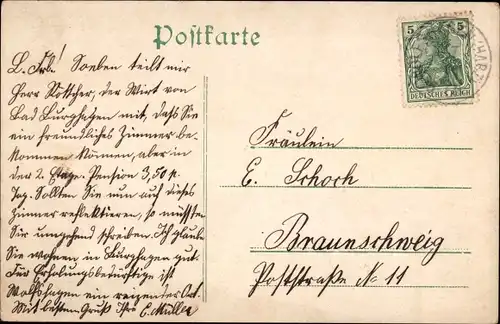 Postkarte
5 5
DEUTSCHES REICH
L. Frl.! Soeben teilt mir
Herr Köttcher, der Wirt von
Bad Lurghagen mit, daß Sie
ein freundliches Zimmer be-
kommen können, aber in
der 2. Etage. Pension 3,50 p.
Tag. Sollten Sie nun auf dieses
Zimmer reflektieren, so müßten
Sie umgehend schreiben. Ich glaube
Sie wohnen in Lurghagen gut.
Für Erholungsbedürftige ist
Wolfshagen ein reizender Ort.
Mit bestem Gruß Ihre E. Müller
Fräulein
E. Schoch
Braunschweig
Poststraße No 11